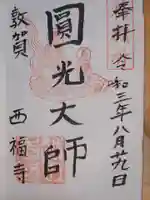 奉拝 令和三年八月廿九日
圓光大師
敦賀 西福寺